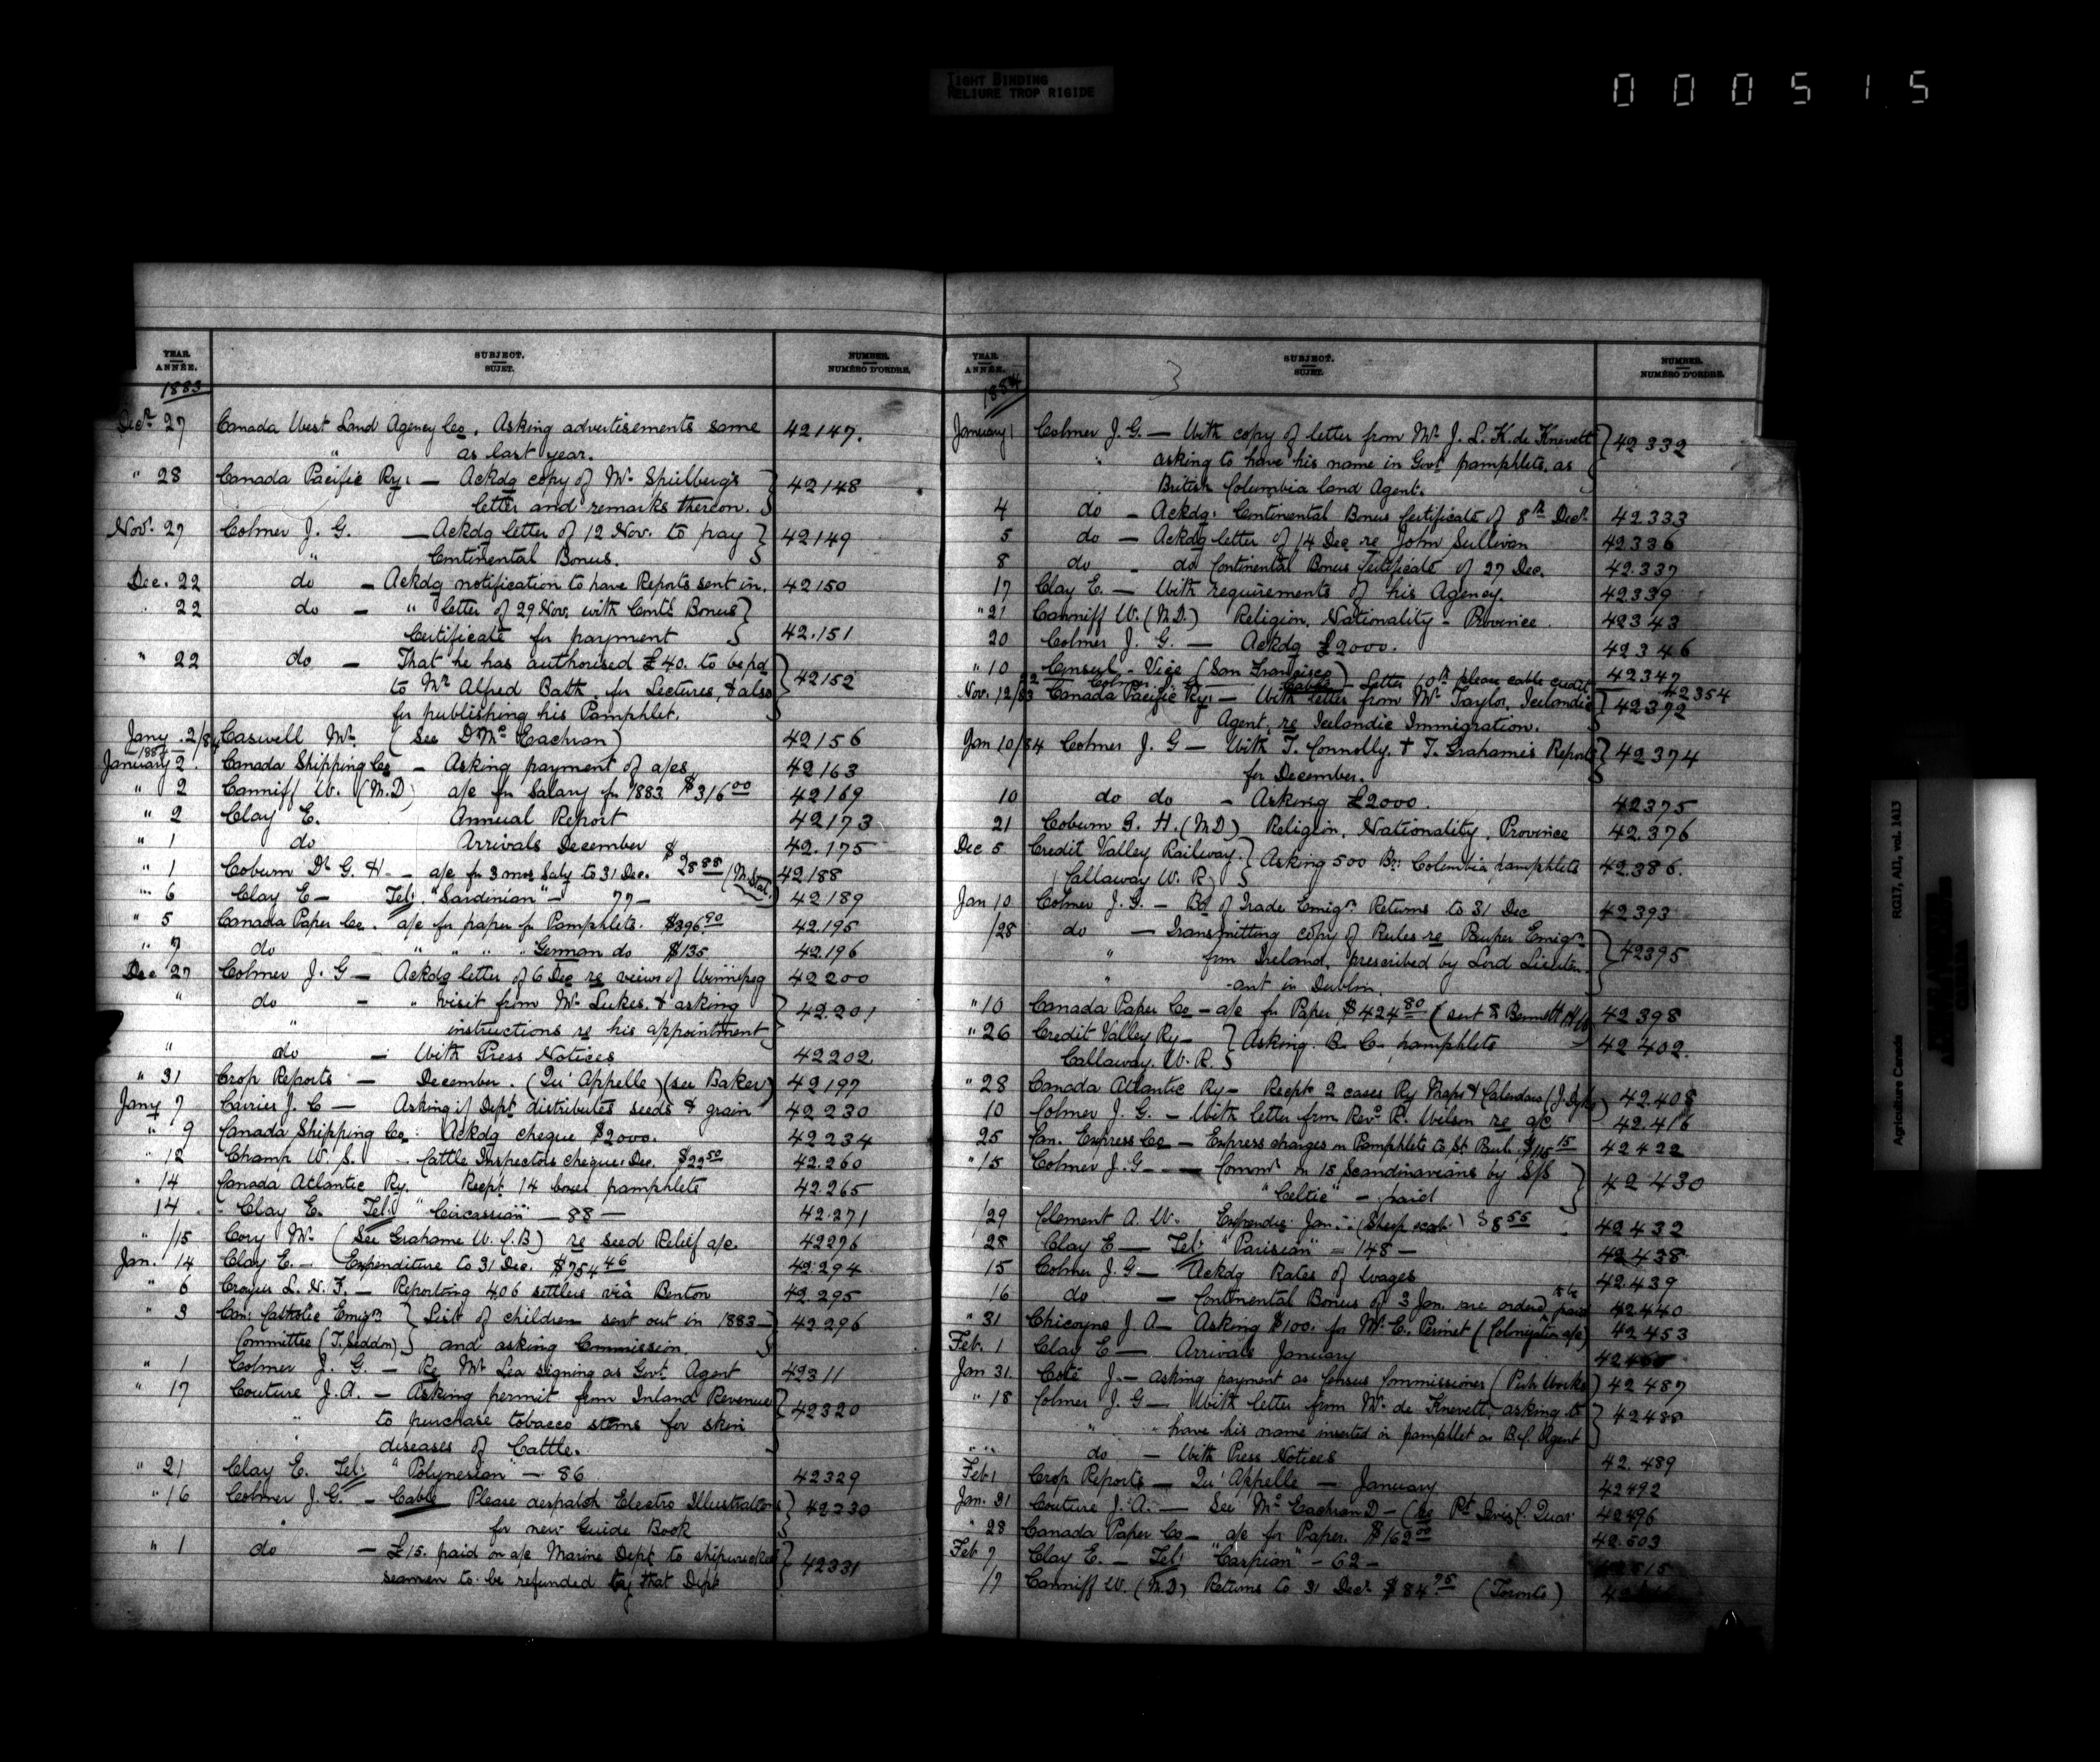 TIGHT BINDING
RELIURE TROP RIGIDE
000515
YEAR. ANNÉE. SUBJECT. SUJET. NUMBER. NUMÉRO D'ORDRE.
1883
Decr. 27 Canada West Land Agency Co. Asking advertisements same 42147.
" as last year.
" 28 Canada Pacific Ry. — Ackdg copy of Mr. Spielberg's 42148
letter and remarks thereon.
Nov. 27 Colmer J. G. — Ackdg letter of 12 Nov. to pay 42149
" Continental Bonus.
Dec. 22 do — Ackdg notification to have Reports sent in. 42150
22 do — " letter of 29 Nov. with Contl Bonus
Certificate for payment 42.151
" 22 do — That he has authorised £40. to be pd 42152
to Mr Alfred Bath for Lectures, & also
for publishing his Pamphlet.
Jany. 2/84 Caswell Mr. (See D. McEachran) 42156
1884
January 2. Canada Shipping Co — Asking payment of a/cs 42163
" 2 Canniff W. (M.D) a/c for Salary for 1883 $316.00 42169
" 2 Clay E. Annual Report 42173
" 1 do Arrivals December 42.175
" 1 Coburn Dr G. H. — a/c for 3 mos Saly to 31 Dec. $28.88 (M. Stat.) 42188
" 6 Clay E — Tel: "Sardinian" — 77 — 42.189
" 5 Canada Paper Co. a/c for paper for Pamphlets. $396.90 42.195
" 7 do " " " German do $135 42.196
Dec 27 Colmer J. G — Ackdg letter of 6 Dec re views of Winnipeg 42200
" do — " visit from Mr. Lukes, & asking 42.201
" instructions re his appointment
" do — With Press Notices 42202.
" 31 Crop Reports — December. (Qu'Appelle) (see Baker) 42197
Jany 7 Currier J. C — Asking if Dept distributes seeds & grain 42230
" 9 Canada Shipping Co: Ackdg cheque $2000. 42234
" 12 Champ W. S. — Cattle Inspectors cheque: Dec. $22.50 42.260
" 14 Canada Atlantic Ry. Recpt 14 boxes pamphlets 42.265
14 Clay E. Tel: "Circassian" — 88 — 42.271
" /15 Cory Mr. (See Grahame W. C. B) re seed Relief a/c. 42276
Jan. 14 Clay E. — Expenditure to 31 Dec. $754.46 42.294
" 6 Croyes L. N. F. — Reporting 406 settlers viâ Benton 42.295
" 3 Can: Catholic Emign List of children sent out in 1883 — 42296
Committee (T. Seddon) and asking Commission.
" 1 Colmer J. G. — Re Mr Lea signing as Govt. Agent 42311
" 17 Couture J. A. — Asking permit from Inland Revenue 42320
" to purchase tobacco stems for skin
" diseases of Cattle.
" 21 Clay E. Tel: "Polynesian" — 86 42329
" 16 Colmer J. G. — Cable Please despatch Electro Illustrations 42330
" for new Guide Book
" 1 do — £15. paid on a/c Marine Dept. to shipwrecked 42331
seamen to be refunded by that Dept
YEAR. ANNÉE. SUBJECT. SUJET. NUMBER. NUMÉRO D'ORDRE.
1884
January 1 Colmer J. G. — With copy of letter from Mr. J. L. K. de Knevett 42332
asking to have his name in Govt pamphlets, as
British Columbia Land Agent.
4 do — Ackdg. Continental Bonus Certificate of 8th Decr. 42333
5 do — Ackdg letter of 14 Dec re John Sullivan 42336
8 do — do Continental Bonus Certificate of 27 Dec. 42.337
17 Clay E. — With requirements of his Agency. 42339
" 21 Canniff W. (M.D.) Religion, Nationality - Province. 42343
20 Colmer J. G. — Ackdg £2000. 42346
" 10 Consul - Vice (San Francisco) 42347
22 Colmer J. G — Cable — Letter 10th please cable credit 42354
Nov. 12/83 Canada Pacific Ry: — With letter from Mr. Taylor, Icelandic 42372
Agent, re Icelandic Immigration.
Jan 10/84 Colmer J. G — With T. Connolly. & T. Grahame's Reports 42374
for December.
10 do do — Asking £2000. 42375
21 Coburn G. H. (MD) Religion, Nationality, Province 42.376
Dec 5 Credit Valley Railway. Asking 500 Br: Columbia pamphlets 42.386.
(Callaway W. R)
Jan 10 Colmer J. G. — Bd of Trade Emign Returns to 31 Dec 42393
/28 do — Transmitting copy of Rules re Pauper Emign 42395
" from Ireland, prescribed by Lord Lieuten-
" -ant in Dublin.
" 10 Canada Paper Co — a/c for Paper $424.80 (sent R Bennett 42398
" 26 Credit Valley Ry — Asking B. C. pamphlets 42402.
Callaway. W. R.
" 28 Canada Atlantic Ry — Recpt 2 cases Ry Maps & Calendars (J. Dyke) 42.408
10 Colmer J. G. — With letter from Revd R. Wilson re a/c 42.416
25 Can. Express Co — Express charges on Pamphlets to St Paul. $115.15 42422
" 15 Colmer J. G — Commn on 15 Scandinavians by S/S 42430
"Celtic" — paid
/29 Clement A. W. Expendre Jan.: (Sheep scab) $8.55 42432
28 Clay E — Tel: "Parisian" — 148 — 42438
15 Colmer J. G — Ackdg Rates of Wages 42439
16 do — Continental Bonus of 3 Jan. are ordered to be paid 42440
" 31 Chicoyne J. A — Asking $100. for Mr. C. Perinet (Colonization a/c) 42453
Feb. 1 Clay E — Arrivals January
Jan 31. Coté J. — asking payment as Census Commissioner (Pub. Works) 42487
" 18 Colmer J. G — With letter from Mr. de Knevett, asking to 42488
" have his name inserted in pamphlet as B.C. Agent
" " do — With Press Notices 42.489
Feb 1 Crop Reports — Qu'Appelle — January 42492
Jan. 31 Couture J. A. — See McEachran D — (re Pt Levis C. Quar: 42496
" 28 Canada Paper Co — a/c for Paper. $162.00 42.503
Feb 7 Clay E. — Tel: "Caspian" — 62 —
/7 Canniff W. (M.D) Returns to 31 Decr. $84.75 (Toronto)
Agriculture Canada RG17, AI1, vol. 1413